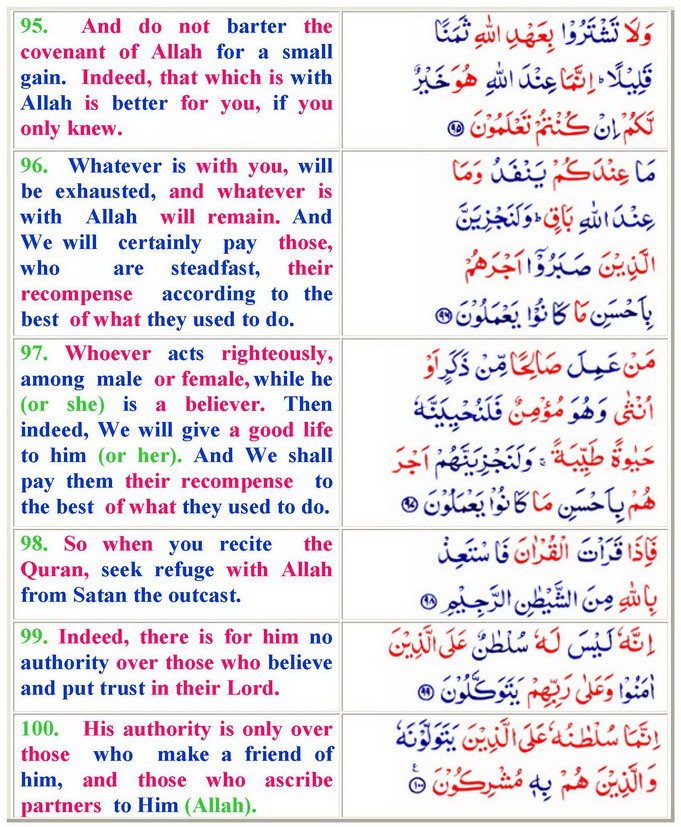 95. And do not barter the
covenant of Allah for a small
gain. Indeed, that which is with
Allah is better for you, if you
only knew.
وَلَا تَشْتَرُوْا بِعَهْدِ اللّٰهِ ثَمَنًا
قَلِيْلًا ؕ اِنَّمَا عِنْدَ اللّٰهِ هُوَ خَيْرٌ
لَّكُمْ اِنْ كُنْتُمْ تَعْلَمُوْنَ ۹۵
96. Whatever is with you, will
be exhausted, and whatever is
with Allah will remain. And
We will certainly pay those,
who are steadfast, their
recompense according to the
best of what they used to do.
مَا عِنْدَكُمْ يَنْفَدُ وَمَا
عِنْدَ اللّٰهِ بَاقٍ ؕ وَلَنَجْزِيَنَّ
الَّذِيْنَ صَبَرُوْۤا اَجْرَهُمْ
بِاَحْسَنِ مَا كَانُوْا يَعْمَلُوْنَ ۹۶
97. Whoever acts righteously,
among male or female, while he
(or she) is a believer. Then
indeed, We will give a good life
to him (or her). And We shall
pay them their recompense to
the best of what they used to do.
مَنْ عَمِلَ صَالِحًا مِّنْ ذَكَرٍ اَوْ
اُنْثٰى وَهُوَ مُؤْمِنٌ فَلَنُحْيِيَنَّهٗ
حَيٰوةً طَيِّبَةً ۚ وَلَنَجْزِيَنَّهُمْ اَجْرَ
هُمْ بِاَحْسَنِ مَا كَانُوْا يَعْمَلُوْنَ ۹۷
98. So when you recite the
Quran, seek refuge with Allah
from Satan the outcast.
فَاِذَا قَرَاْتَ الْقُرْاٰنَ فَاسْتَعِذْ
بِاللّٰهِ مِنَ الشَّيْطٰنِ الرَّجِيْمِ ۹۸
99. Indeed, there is for him no
authority over those who believe
and put trust in their Lord.
اِنَّهٗ لَيْسَ لَهٗ سُلْطٰنٌ عَلَى الَّذِيْنَ
اٰمَنُوْا وَعَلٰى رَبِّهِمْ يَتَوَكَّلُوْنَ ۹۹
100. His authority is only over
those who make a friend of
him, and those who ascribe
partners to Him (Allah).
اِنَّمَا سُلْطٰنُهٗ عَلَى الَّذِيْنَ يَتَوَلَّوْنَهٗ
وَالَّذِيْنَ هُمْ بِهٖ مُشْرِكُوْنَ ۱۰۰ ع